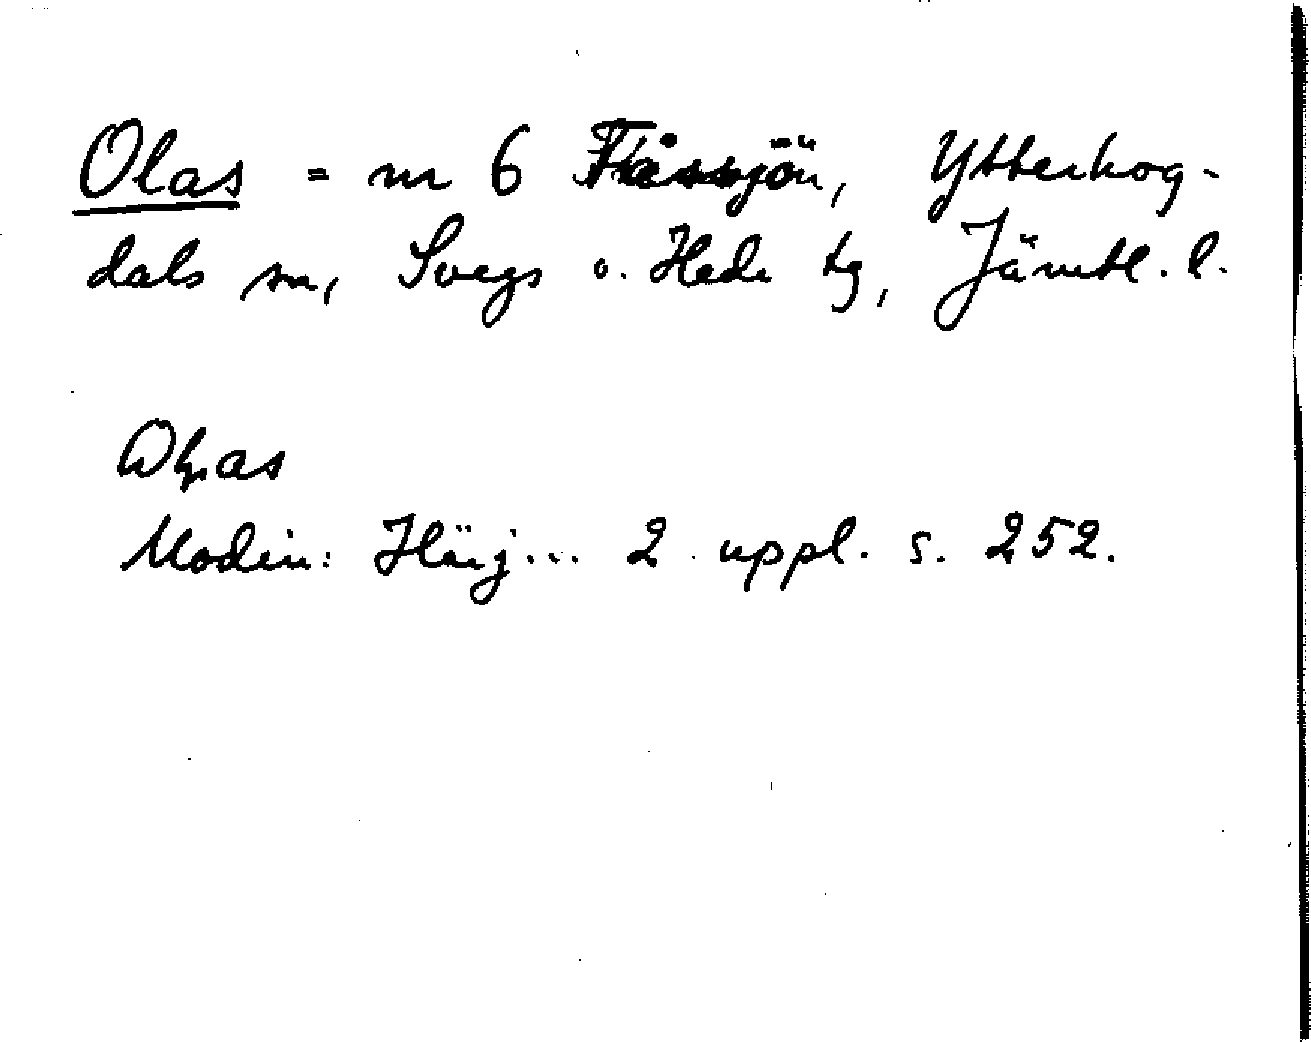 Olas = nr 6 Flåssjön, Ytterhog-
dals sn, Svegs o. Hede tg, Jämtl. l.
as
Modin: Härj... 2 uppl. s. 252.